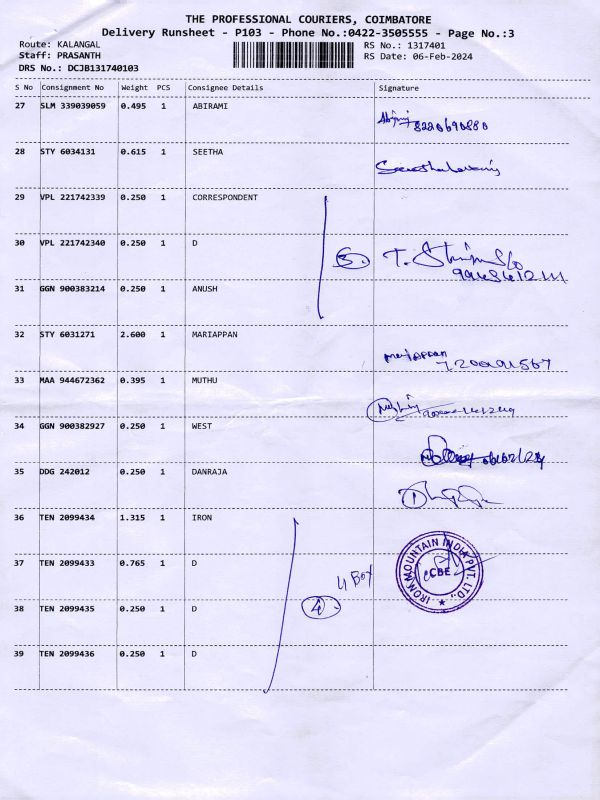 THE PROFESSIONAL COURIERS, COIMBATORE
Delivery Runsheet - P103 - Phone No.:0422-3505555 - Page No.:3
Route: KALANGAL RS No.: 1317401
Staff: PRASANTH RS Date: 06-Feb-2024
DRS No.: DCJB131740103
S No Consignment No Weight PCS Consignee Details Signature
27 SLM 339039059 0.495 1 ABIRAMI
8220690880
28 STY 6034131 0.615 1 SEETHA
29 VPL 221742339 0.250 1 CORRESPONDENT
30 VPL 221742340 0.250 1 D
3.
31 GGN 900383214 0.250 1 ANUSH
32 STY 6031271 2.600 1 MARIAPPAN
33 MAA 944672362 0.395 1 MUTHU
34 GGN 900382927 0.250 1 WEST
35 DDG 242012 0.250 1 DANRAJA
36 TEN 2099434 1.315 1 IRON
37 TEN 2099433 0.765 1 D
4 Box
IRON MOUNTAIN INDIA PVT. LTD.,
CBE
38 TEN 2099435 0.250 1 D
4.
39 TEN 2099436 0.250 1 D